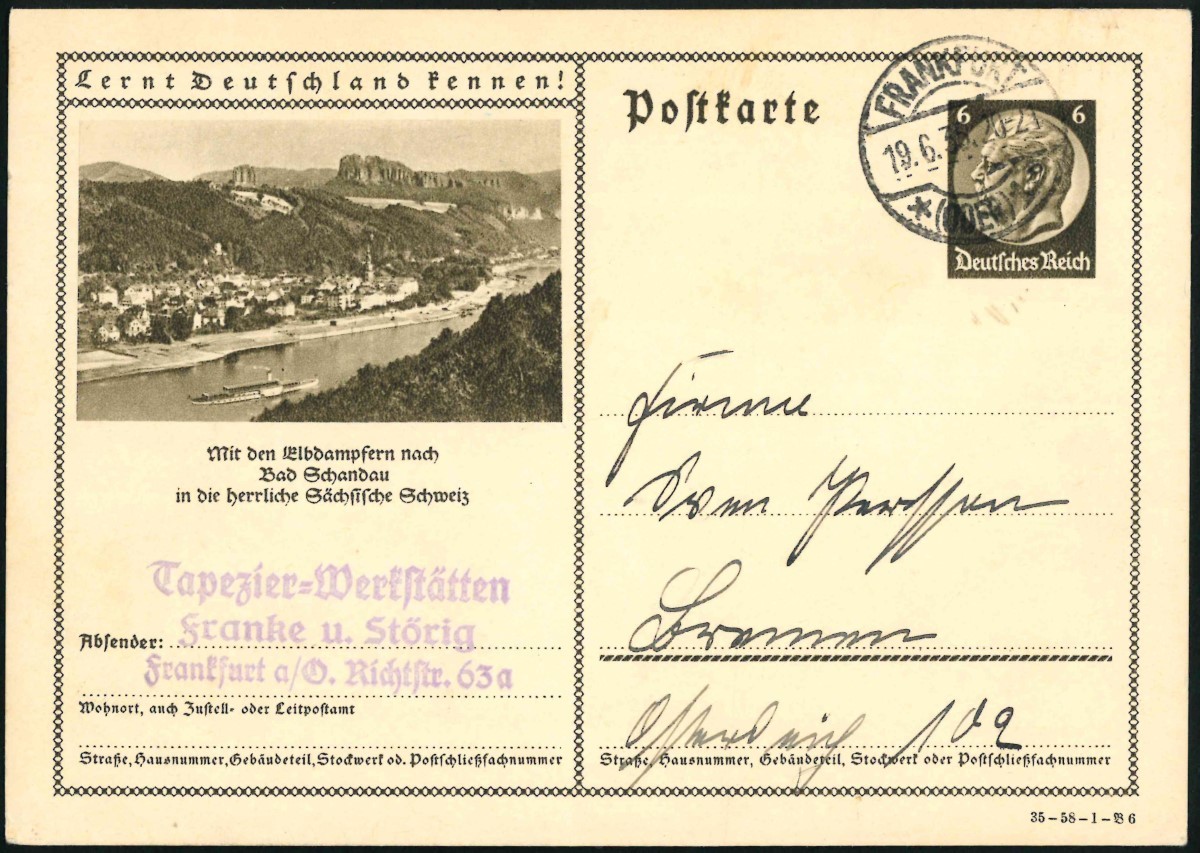 Lernt Deutschland kennen!
Mit den Elbdampfern nach
Bad Schandau
in die herrliche Sächsische Schweiz
Tapezier-Werkstätten
Absender: Franke u. Störig
Frankfurt a/O. Richtstr. 63a
Wohnort, auch Zustell- oder Leitpostamt
Straße, Hausnummer, Gebäudeteil, Stockwerk od. Postschließfachnummer
Postkarte
FRANKFURT
19.6.
* (ODER)
6 6
Deutsches Reich
Firma
Sven Persson
Bremen
Osterdeich 102
Straße, Hausnummer, Gebäudeteil, Stockwerk oder Postschließfachnummer
35-58-1-B6